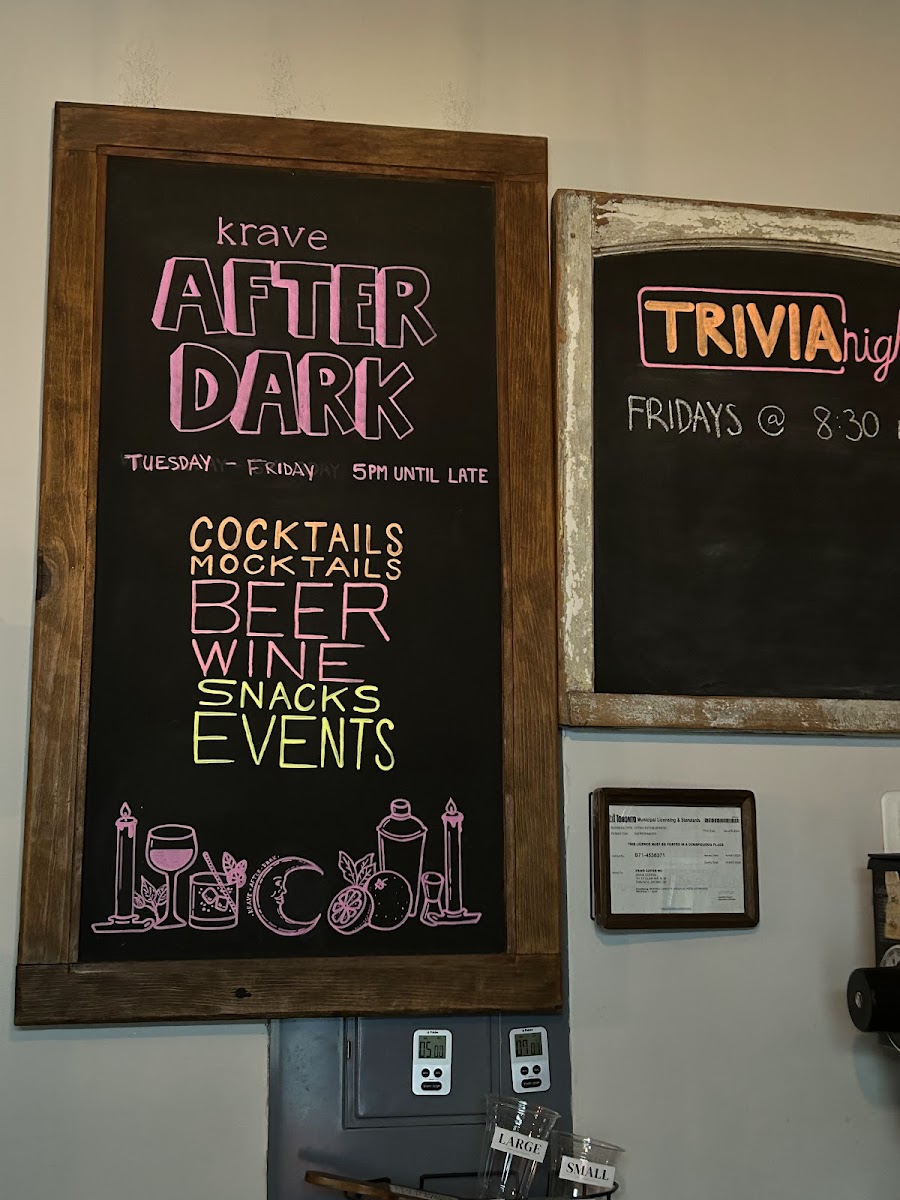 krave
AFTER
DARK
TUESDAY - FRIDAY 5PM UNTIL LATE
COCKTAILS
MOCKTAILS
BEER
WINE
SNACKS
EVENTS
TRIVIA
FRIDAYS @ 8:30
TORONTO Municipal Licensing & Standards
THIS LICENCE MUST BE POSTED IN A CONSPICUOUS PLACE
B71-4536371
LARGE
SMALL